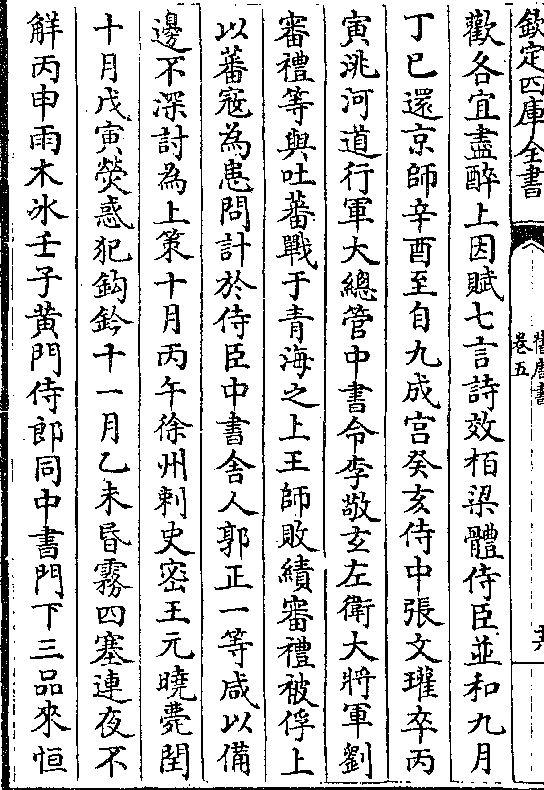 欽定四庫全書
舊唐書
卷五
歡各宜盡醉上因賦七言詩效栢梁體侍臣並和九月
丁巳還京師辛酉至自九成宫癸亥侍中張文瓘卒丙
寅洮河道行軍大總管中書令李敬玄左衛大將軍劉
審禮等與吐蕃戰于青海之上王師敗績審禮被俘上
以蕃寇為患問計於侍臣中書舍人郭正一等咸以備
邊不深討為上策十月丙午徐州刺史密王元曉薨閏
十月戊寅熒惑犯鈎鈐十一月乙未昏霧四塞連夜不
觧丙申雨木冰壬子黄門侍郎同中書門下三品來恒